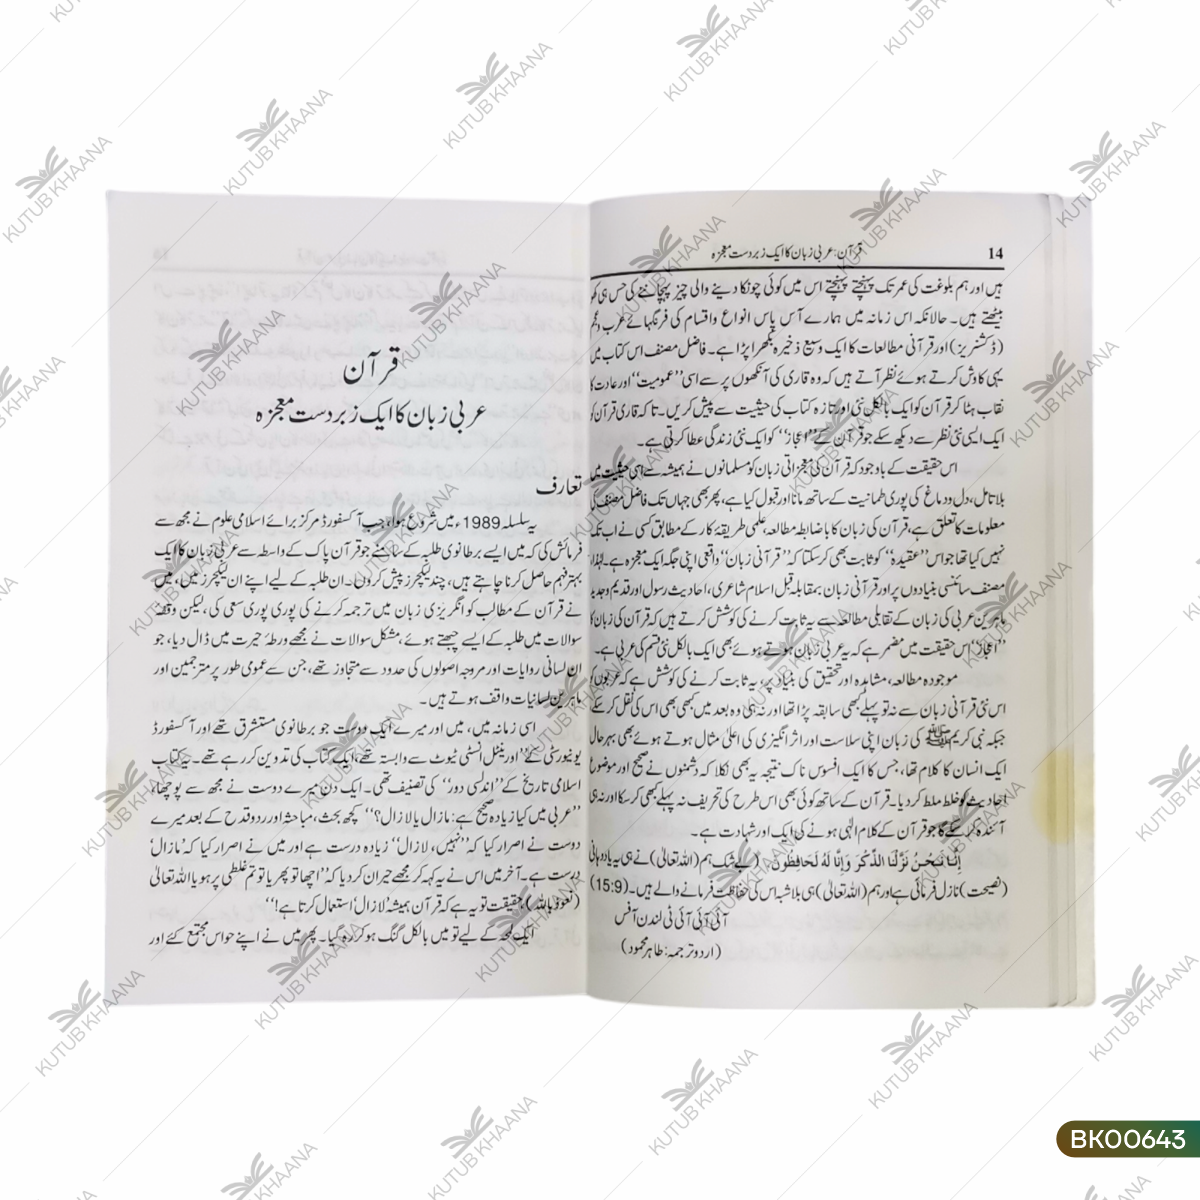 14
قرآن: عربی زبان کا ایک زبردست معجزہ
ہیں اور ہم بلوغت کی عمر تک پہنچتے پہنچتے اس میں کوئی چونکا دینے والی چیز پہچاننے کی حس ہی کھو
بیٹھتے ہیں۔ حالانکہ اس زمانہ میں ہمارے آس پاس انواع و اقسام کی فرہنگہائے عرب و عجم
(ڈکشنریز) اور قرآنی مطالعات کا ایک وسیع ذخیرہ بکھرا پڑا ہے۔ فاضل مصنف اس کتاب میں
یہی کاوش کرتے ہوئے نظر آتے ہیں کہ وہ قاری کی آنکھوں پر سے اسی ”عمومیت“ اور عادت کا
نقاب ہٹا کر قرآن کو ایک بالکل نئی اور تازہ کتاب کی حیثیت سے پیش کریں۔ تاکہ قاری قرآن کو
ایک ایسی نئی نظر سے دیکھ سکے جو قرآن کے ”اعجاز“ کو ایک نئی زندگی عطا کرتی ہے۔
اس حقیقت کے باوجود کہ قرآن کی معجزاتی زبان کو مسلمانوں نے ہمیشہ سے اسی حیثیت میں
بلا تامل، دل و دماغ کی پوری طمانیت کے ساتھ مانا اور قبول کیا ہے، پھر بھی جہاں تک فاضل مصنف کی
معلومات کا تعلق ہے، قرآن کی زبان کا باضابطہ مطالعہ، علمی طریقۂ کار کے مطابق کسی نے اب تک
نہیں کیا تھا جو اس ”عقیدہ“ کو ثابت بھی کر سکتا کہ ”قرآنی زبان“ واقعی اپنی جگہ ایک معجزہ ہے۔ لہٰذا
مصنف سائنسی بنیادوں پر اور قرآنی زبان بمقابلہ قبل اسلام شاعری، احادیث رسول اور قدیم و جدید
ماہرین عربی کی زبان کے تقابلی مطالعہ سے یہ ثابت کرنے کی کوشش کرتے ہیں کہ قرآن کی زبان کا
”اعجاز“ اس حقیقت میں مضمر ہے کہ یہ عربی زبان ہوتے ہوئے بھی ایک بالکل نئی قسم کی عربی ہے۔
موجودہ مطالعہ، مشاہدہ اور تحقیق کی بنیاد پر، یہ ثابت کرنے کی کوشش ہے کہ عربوں کو
اس نئی قرآنی زبان سے نہ تو پہلے کبھی سابقہ پڑا تھا اور نہ ہی وہ بعد میں کبھی بھی اس کی نقل کر سکے
جبکہ نبی کریم ﷺ کی زبان اپنی سلاست اور اثر انگیزی کی اعلیٰ مثال ہوتے ہوئے بھی بہرحال
ایک انسان کا کلام تھا، جس کا ایک افسوس ناک نتیجہ یہ بھی نکلا کہ دشمنوں نے صحیح اور موضوع
احادیث کو خلط ملط کر دیا۔ قرآن کے ساتھ کوئی بھی اس طرح کی تحریف نہ پہلے کبھی کر سکا اور نہ ہی
آئندہ کر سکے گا جو قرآن کے کلام الٰہی ہونے کی ایک اور شہادت ہے۔
إِنَّا نَحْنُ نَزَّلْنَا الذِّكْرَ وَإِنَّا لَهُ لَحَافِظُونَ۔ (بے شک ہم (اللہ تعالیٰ) نے ہی یہ یاد دہانی
(نصیحت) نازل فرمائی ہے اور ہم (اللہ تعالیٰ) ہی بلاشبہ اس کی حفاظت فرمانے والے ہیں۔ (15:9)
آئی آئی آئی ٹی لندن آفس
(اردو ترجمہ: طاہر محمود)
قرآن
عربی زبان کا ایک زبردست معجزہ
تعارف
یہ سلسلہ 1989ء میں شروع ہوا، جب آکسفورڈ مرکز برائے اسلامی علوم نے مجھ سے
فرمائش کی کہ میں ایسے برطانوی طلبہ کے سامنے جو قرآن پاک کے واسطہ سے عربی زبان کا ایک
بہتر فہم حاصل کرنا چاہتے ہیں، چند لیکچرز پیش کروں۔ ان طلبہ کے لیے اپنے ان لیکچرز میں، میں
نے قرآن کے مطالب کو انگریزی زبان میں ترجمہ کرنے کی پوری پوری سعی کی، لیکن وقفۂ
سوالات میں طلبہ کے ایسے چبھتے ہوئے، مشکل سوالات نے مجھے ورطۂ حیرت میں ڈال دیا، جو
ان لسانی روایات اور مروجہ اصولوں کی حدود سے متجاوز تھے، جن سے عمومی طور پر مترجمین اور
ماہرین لسانیات واقف ہوتے ہیں۔
اسی زمانہ میں، میں اور میرے ایک دوست جو برطانوی مستشرق تھے اور آکسفورڈ
یونیورسٹی کے ”اورینٹل انسٹی ٹیوٹ سے وابستہ تھے، ایک کتاب کی تدوین کر رہے تھے۔ یہ کتاب
اسلامی تاریخ کے ”اندلسی دور“ کی تصنیف تھی۔ ایک دن میرے دوست نے مجھ سے پوچھا،
”عربی میں کیا زیادہ صحیح ہے: مازال یا لازال؟“ کچھ بحث، مباحثہ اور ردوقدح کے بعد میرے
دوست نے اصرار کیا کہ ”نہیں، لازال“ زیادہ درست ہے اور میں نے اصرار کیا کہ ”مازال“
درست ہے۔ آخر میں اس نے یہ کہہ کر مجھے حیران کر دیا کہ ”اچھا تو پھر یا تو تم غلطی پر ہو یا اللہ تعالیٰ
(نعوذ باللہ)، حقیقت تو یہ ہے کہ قرآن ہمیشہ ’لازال‘ استعمال کرتا ہے!“
ایک لمحہ کے لیے تو میں بالکل گنگ ہو کر رہ گیا۔ پھر میں نے اپنے حواس مجتمع کئے اور
KUTUB KHAANA
BK00643